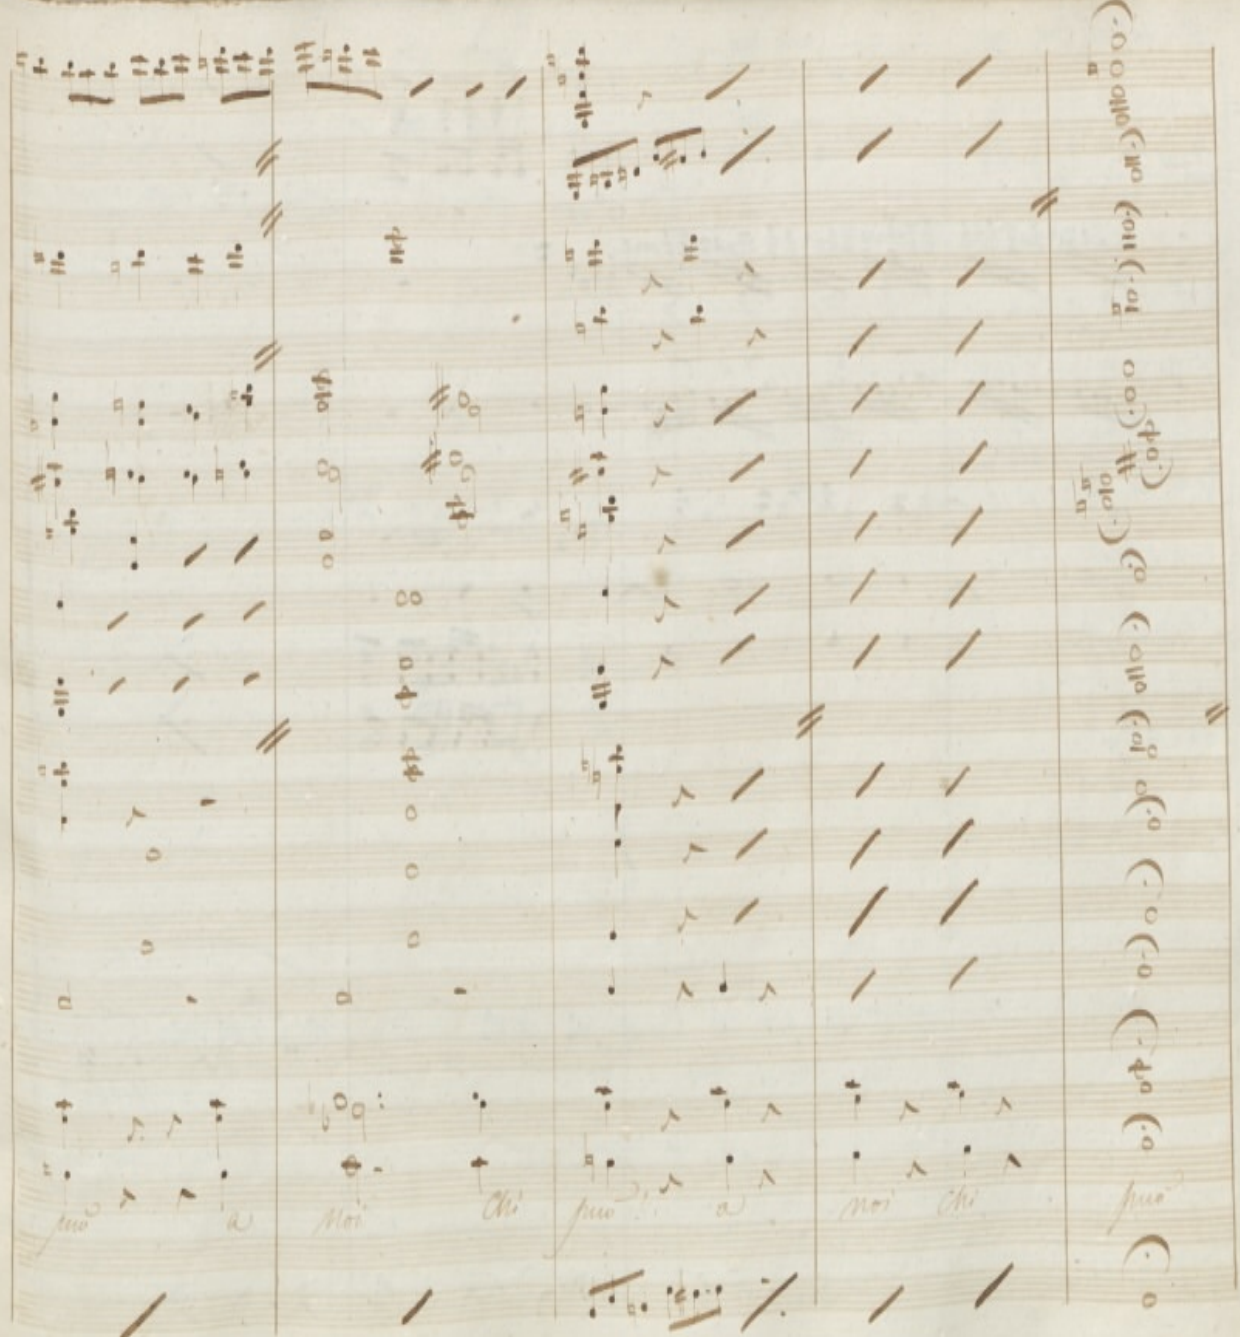 può a noi Chi può a noi chi può